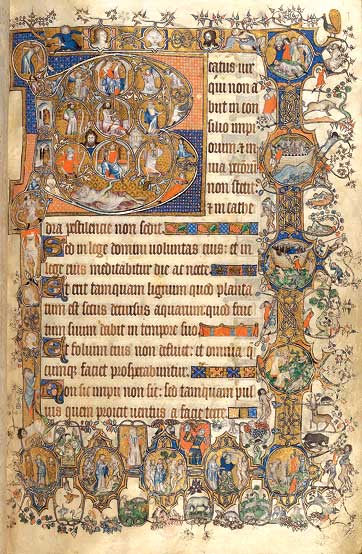 Beatus uir
qui non a
bit in con
silio impi
orum & in ui
a pctorū
non stetit:
& in cathe
dra pestilencie non sedit.
Sed in lege domini uoluntas eius: et in
lege eius meditabitur die ac nocte
Et erit tamquam lignum quod planta
tum est secus decursus aquarum: quod fruc
tum suum dabit in tempore suo
Et folium eius non defluet: et omnia q
cumqꝫ faciet prosperabuntur.
Non sic impii non sic: sed tamquam pul
uis quem proicit uentus a facie terre.